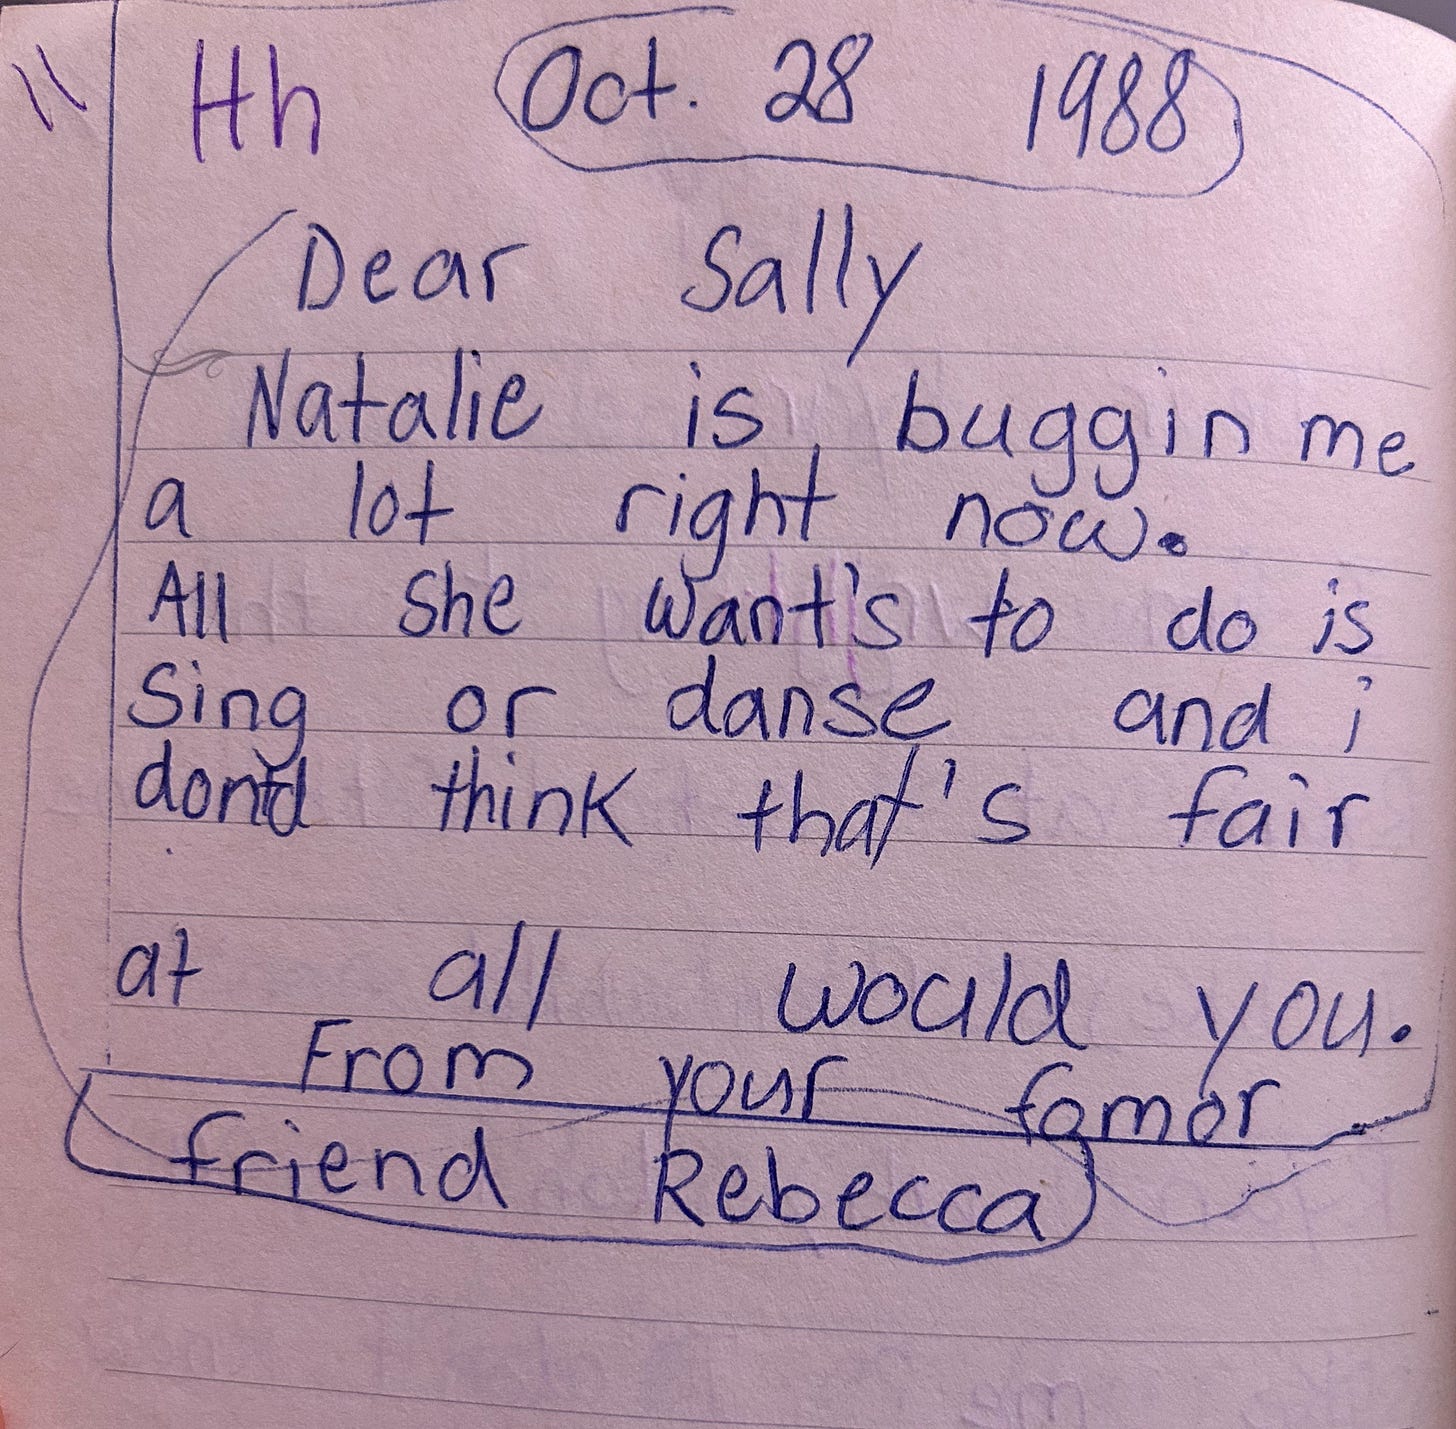 11 Hh Oct. 28 1988
Dear Sally
Natalie is buggin me
a lot right now.
All she want's to do is
Sing or danse and i
think that's fair
at all would you.
From your famor
friend Rebecca